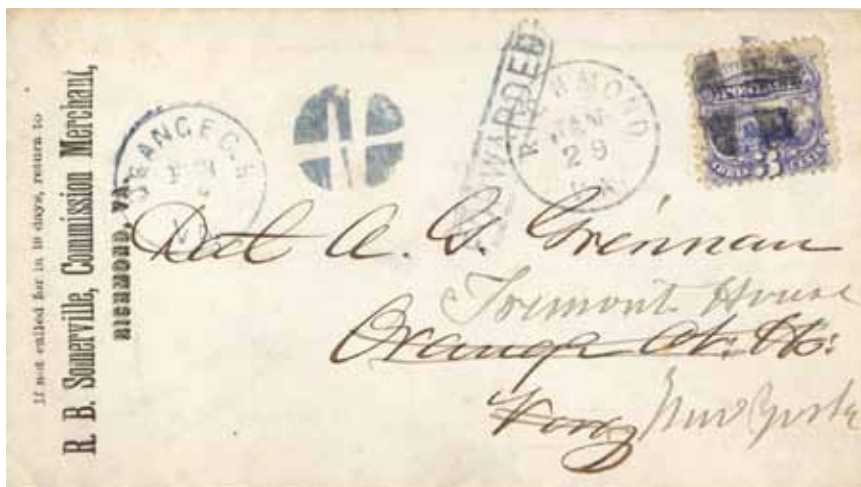 If not called for in 10 days, return to
R. B. Somerville, Commission Merchant,
RICHMOND, VA.
ORANGE C. H.
VA
FORWARDED
RICHMOND
JAN
29
VA
POSTAGE
3
A. G. Grinnan
Tremont House
Orange Ct. Ho:
New York